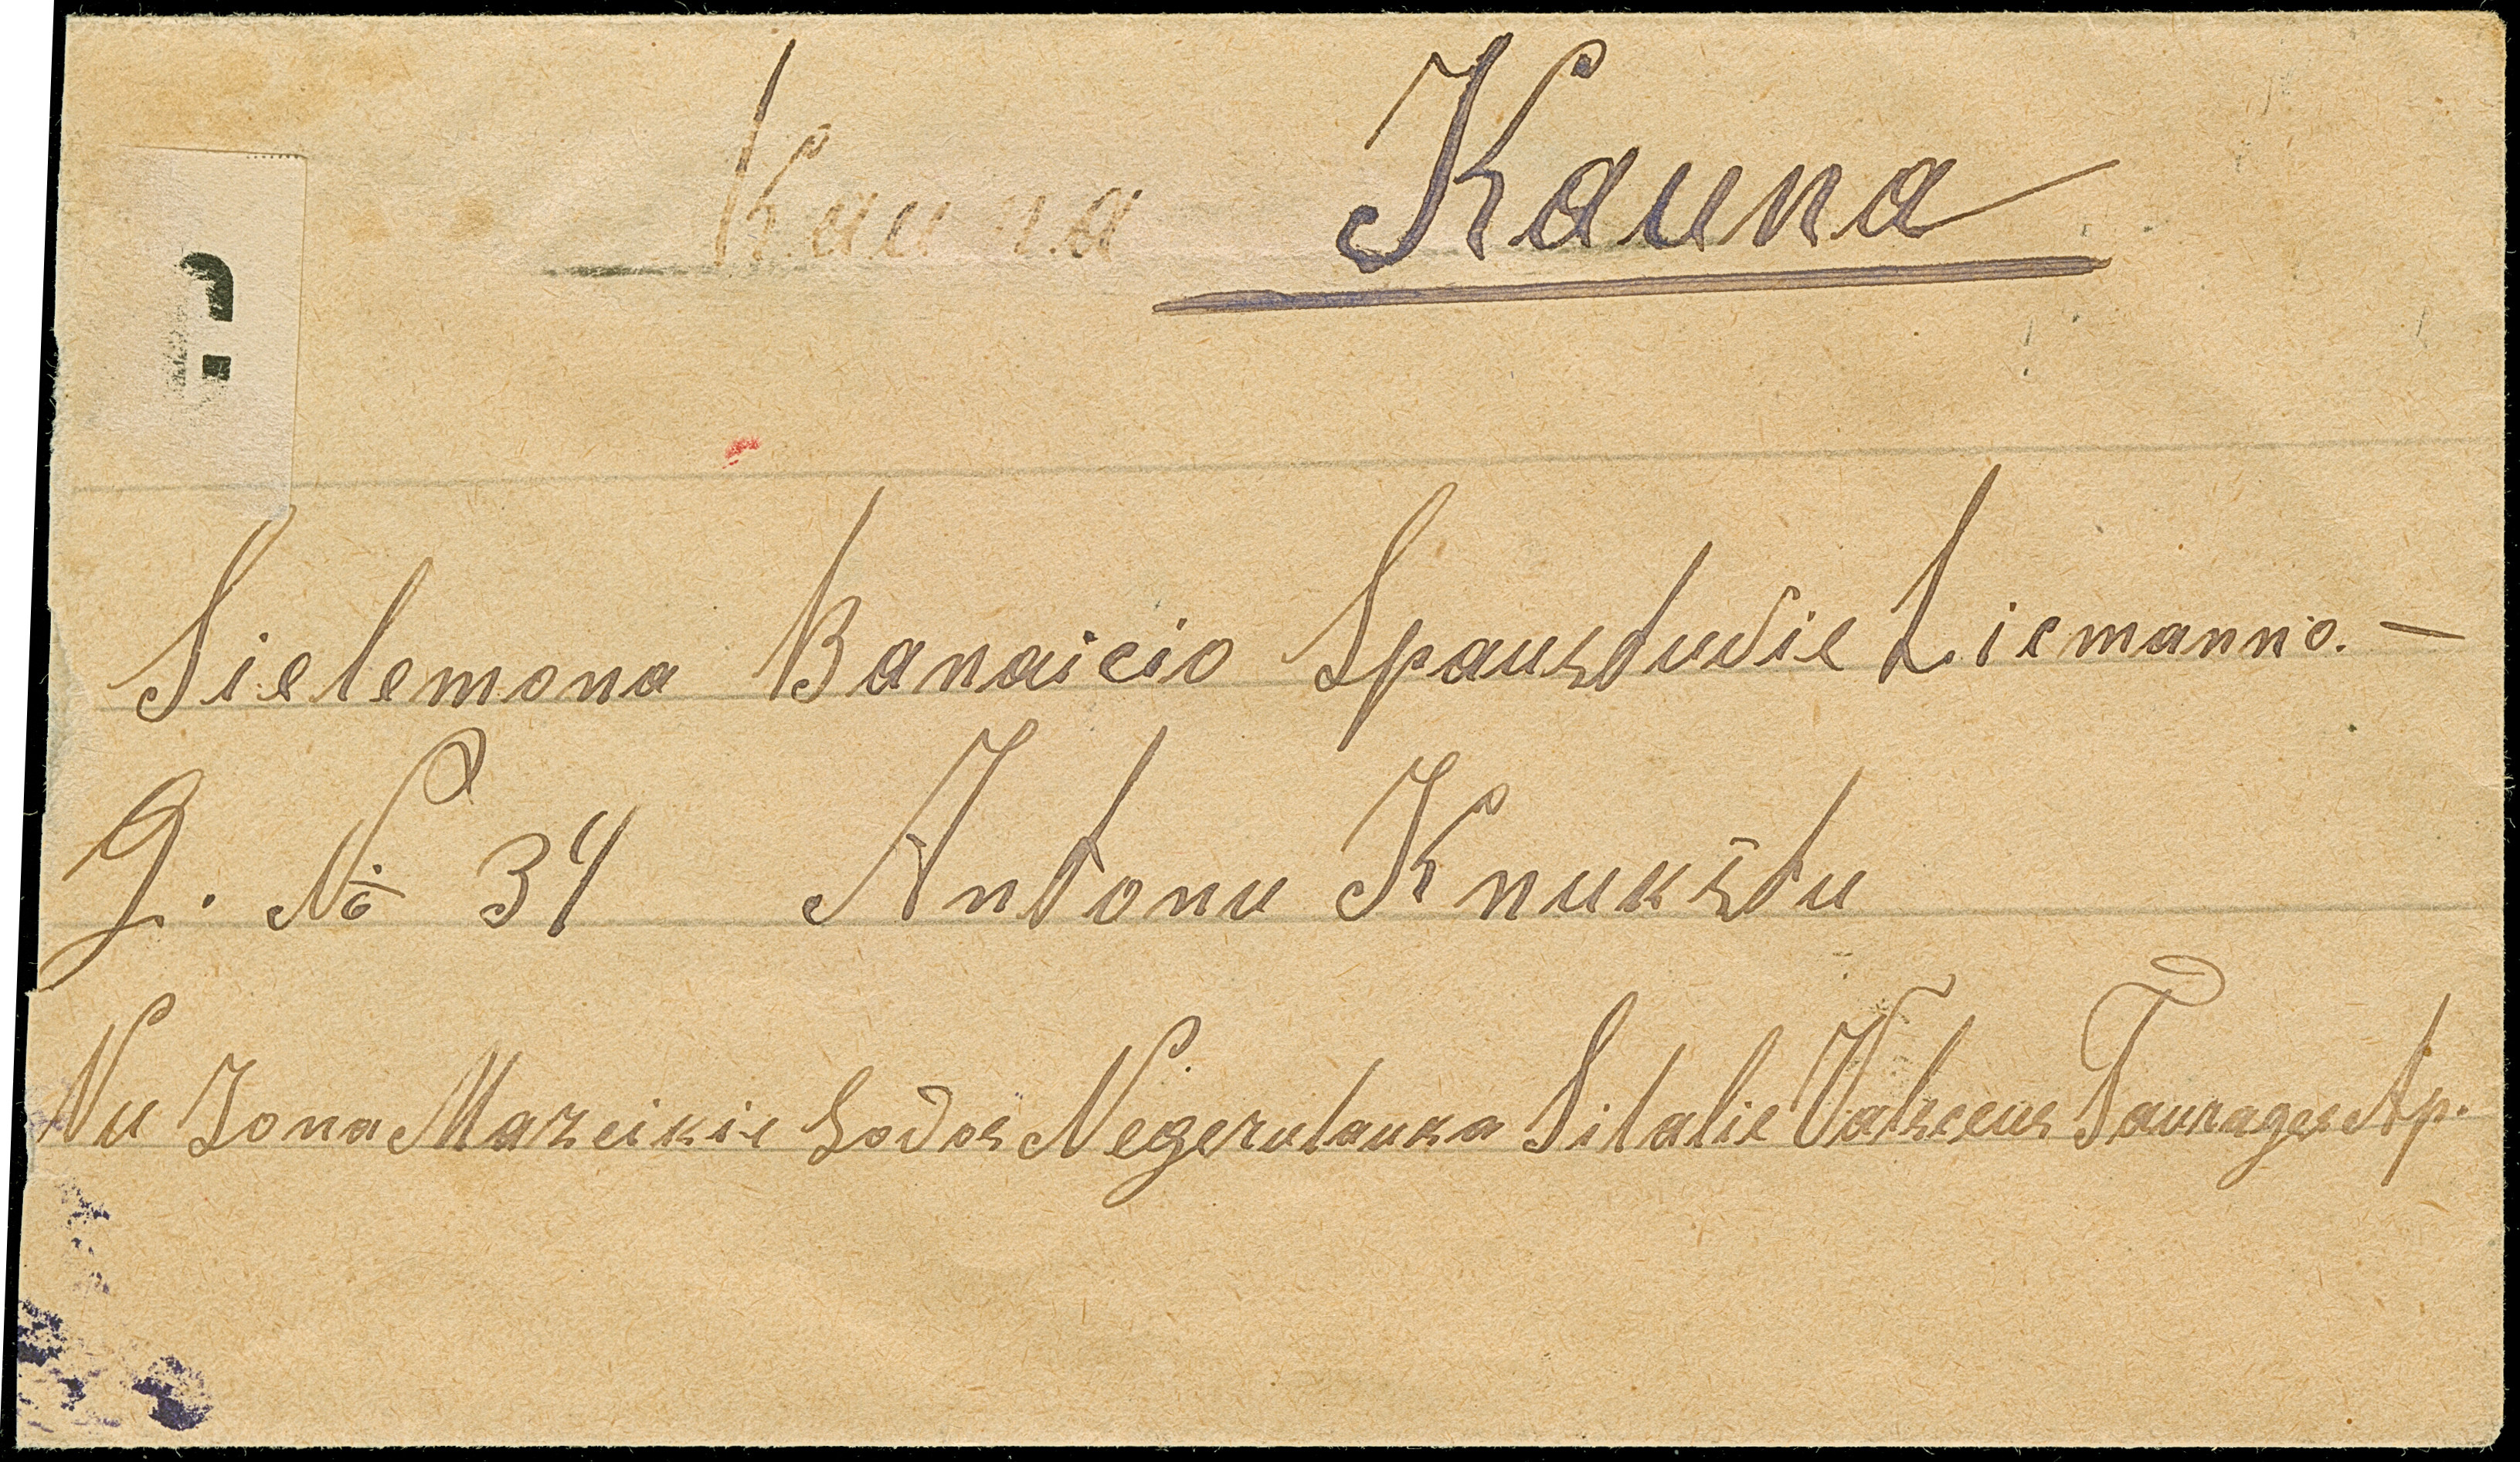 Kauna Kauna
Sielemona Banaicio Spaustuvie Ziemanno.—
G. № 34 Antonu Knukštu
Nu Jona Mazeikie Sodos Negerulauka Silalie Valsceus Taurages Ap.